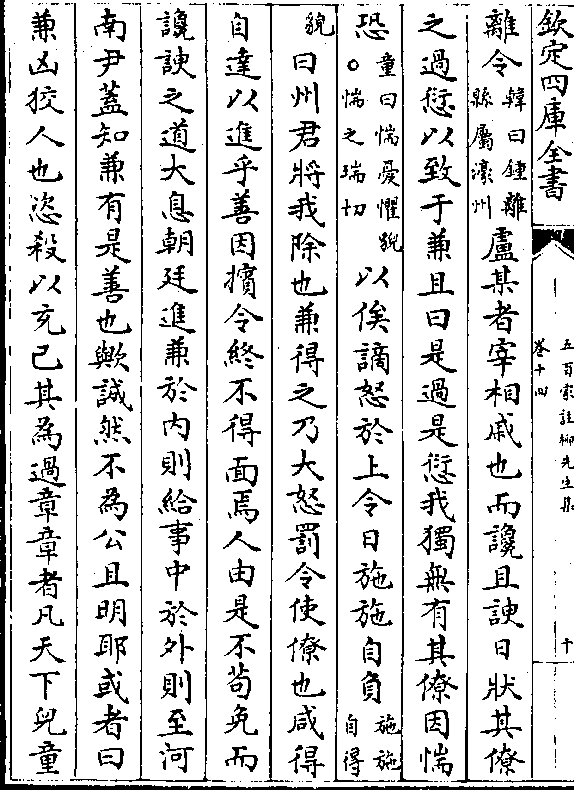 欽定四庫全書
五百家註柳先生集
卷十四
十
離令韓曰鍾離縣屬濠州盧某者宰相戚也而讒且諛日狀其僚
之過愆以致于兼且曰是過是愆我獨無有其僚因惴
恐童曰惴憂懼貌○惴之瑞切以俟謫怒於上令日施施自負施施自得
貌曰州君將我除也兼得之乃大怒罰令使僚也咸得
自達以進乎善因擯令終不得面焉人由是不茍免而
讒諛之道大息朝廷進兼於內則給事中於外則至河
南尹蓋知兼有是善也歟誠然不為公且明耶或者曰
兼凶狡人也恣殺以充己其為過章章者凡天下兒童